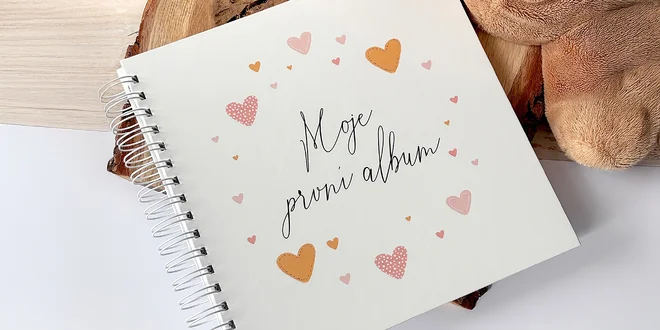 Moje
proni album